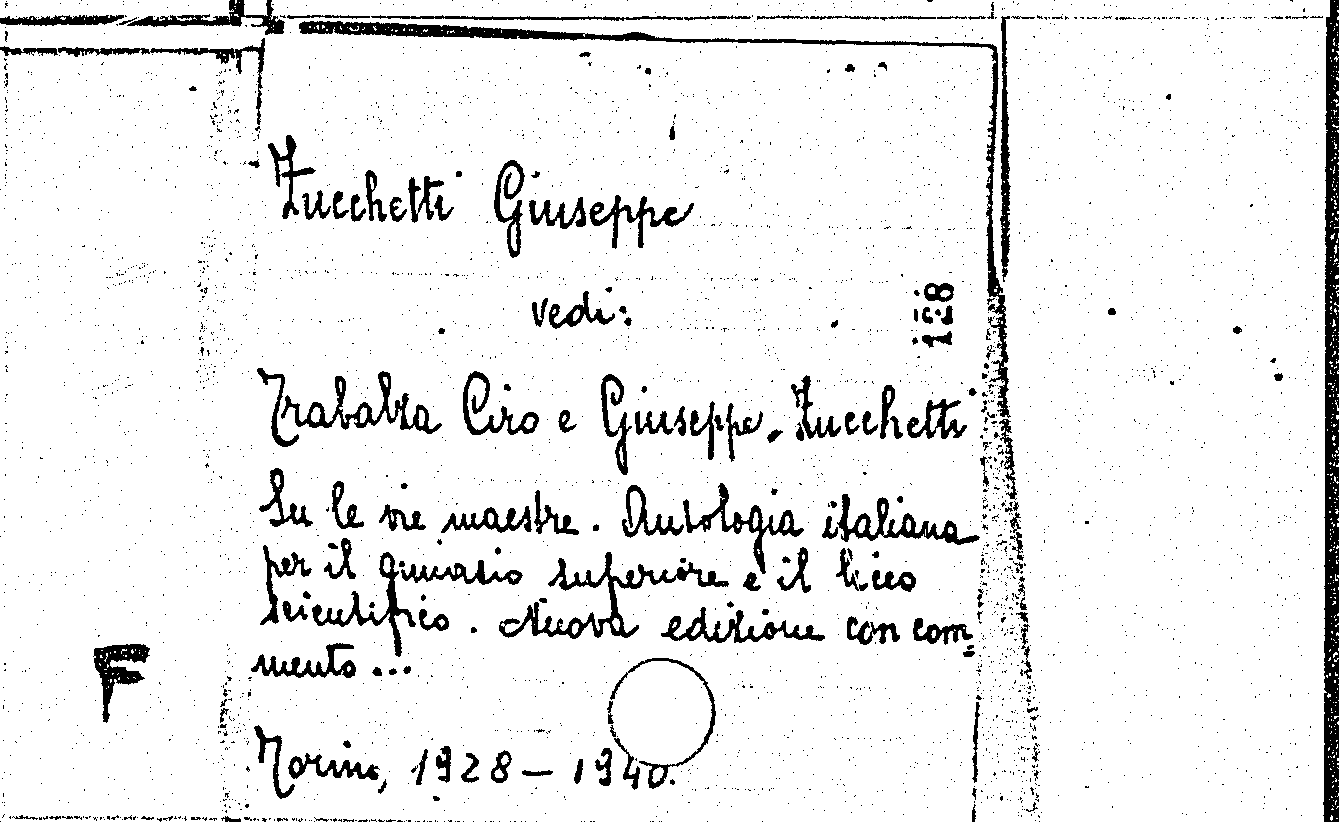 Zucchetti Giuseppe
vedi:
128
Trabalza Ciro e Giuseppe Zucchetti
Su le vie maestre. Antologia italiana
per il ginnasio superiore e il liceo
scientifico. Nuova edizione con com=
mento...
F
Torino, 1928 – 1940.